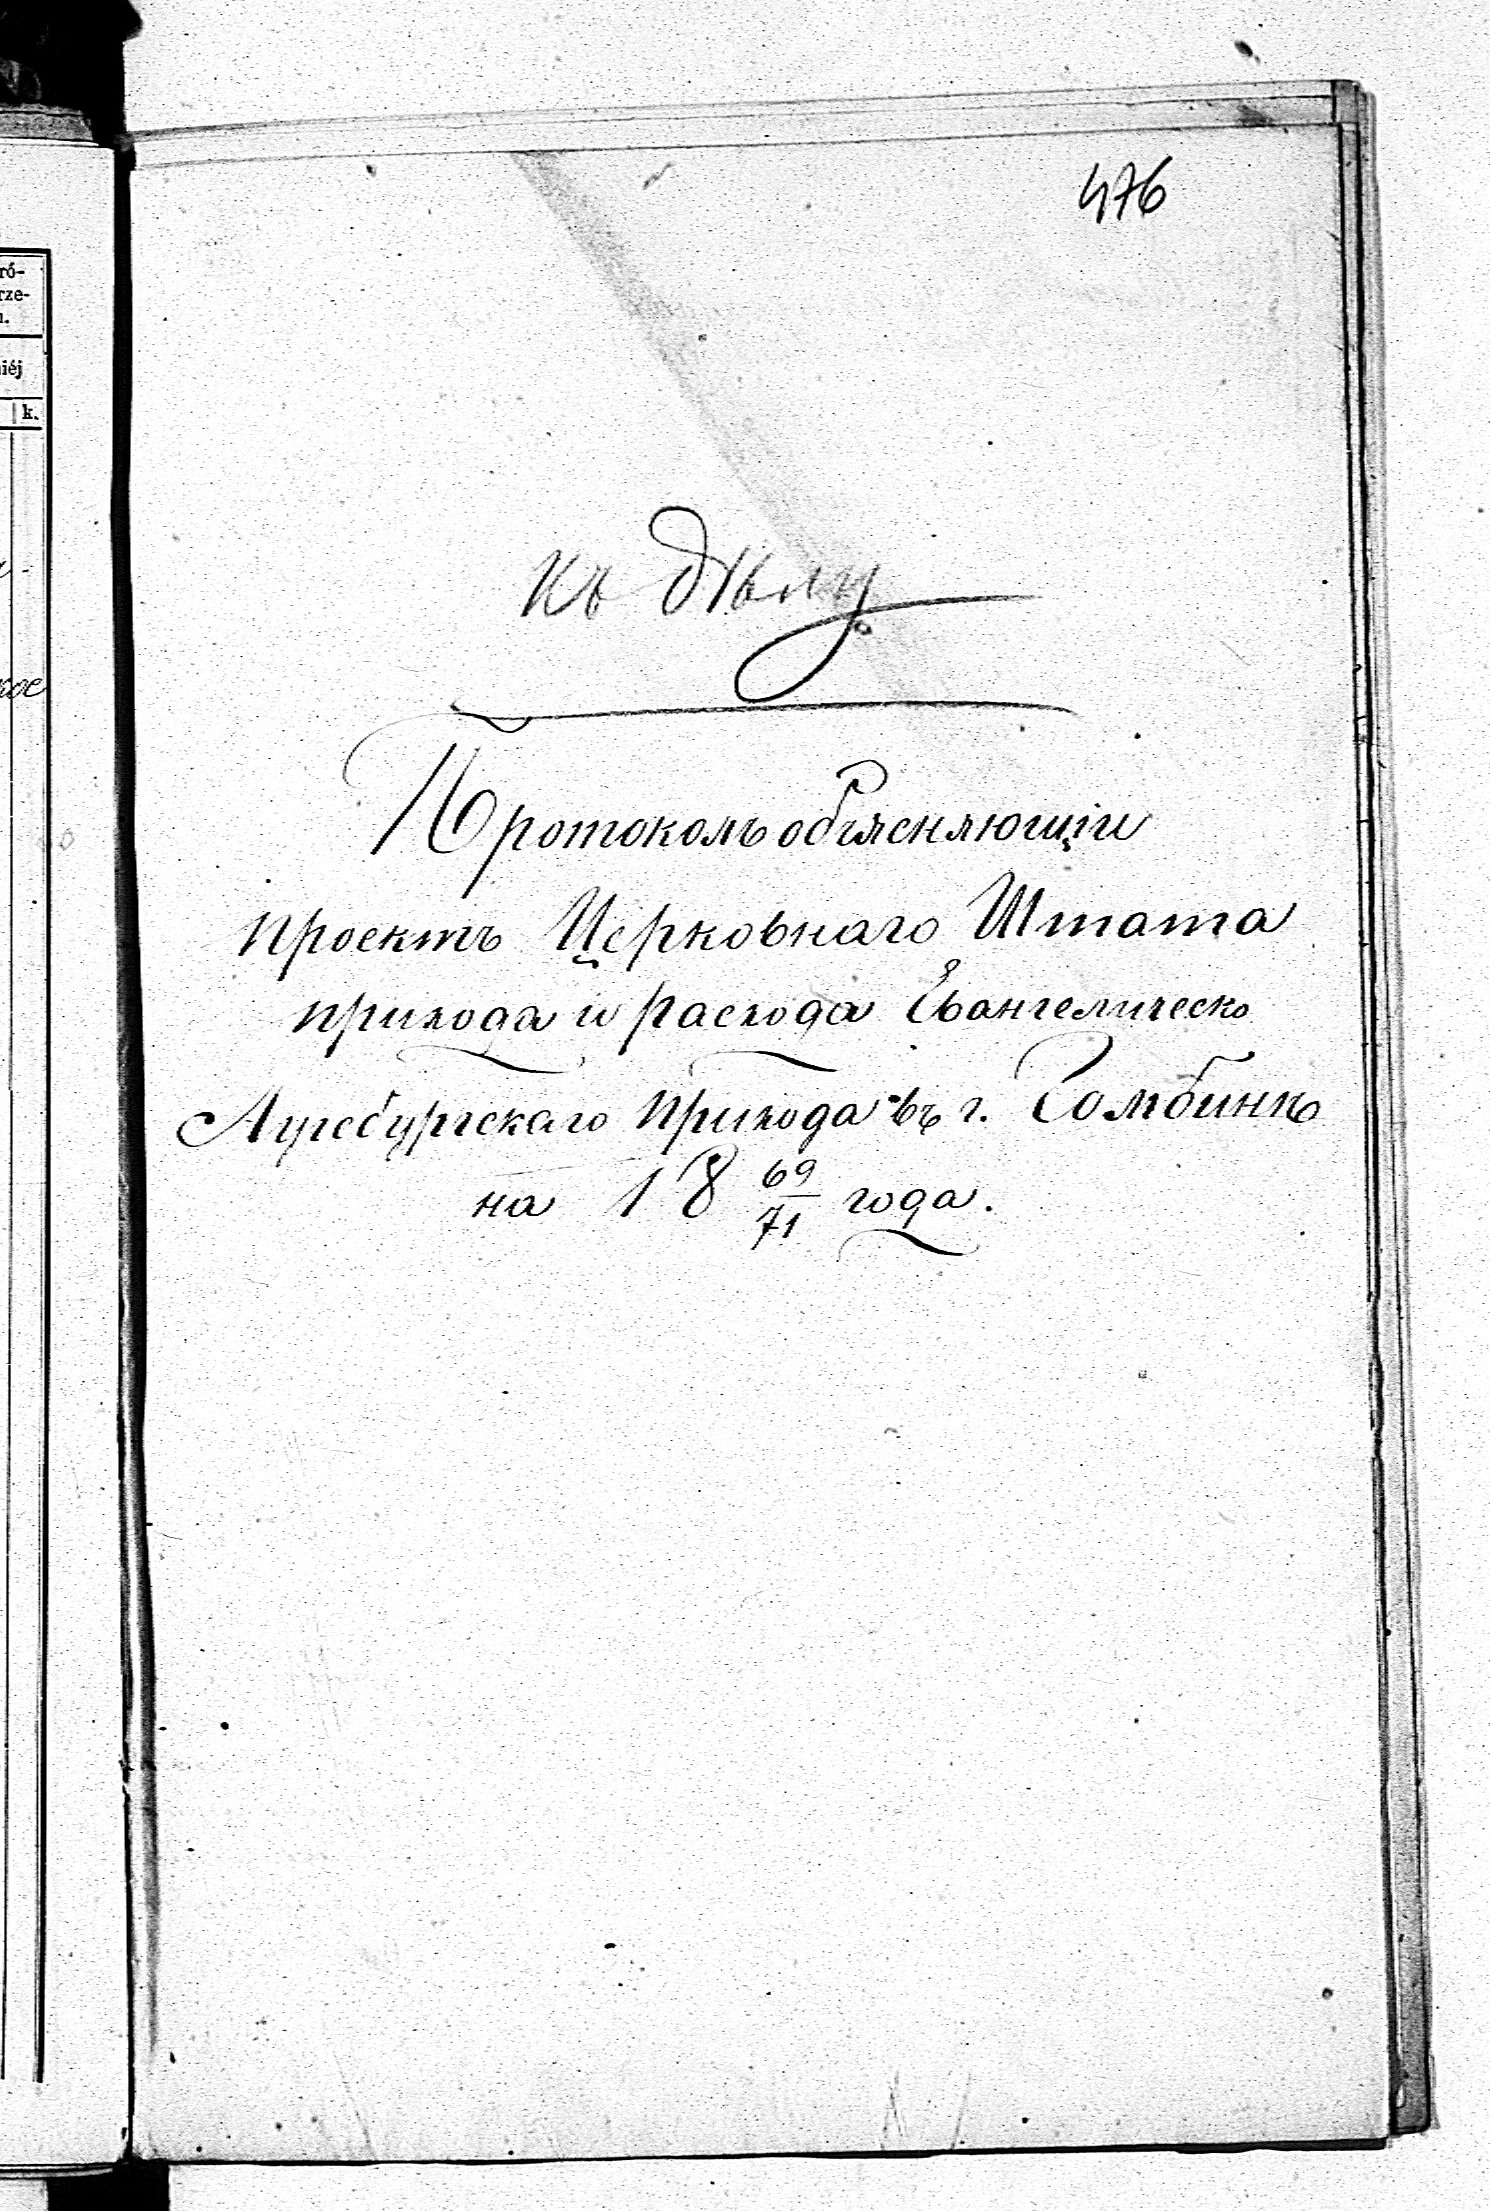 476
ró-
rze-
iéj
k.
кое
Къ дѣлу
Протоколъ объясняющіи
проектъ Церковнаго Штата
прихода и расхода Евангелическо
Аугсбургскаго Прихода въ г. Гомбинѣ
на 18 69/71 года.